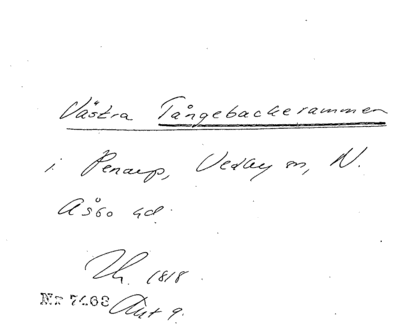 Västra Tångebackerammen
i Penarp, Vedby sn, N.
Åsbo hd.
1818
Nr 7468 Akt 9.